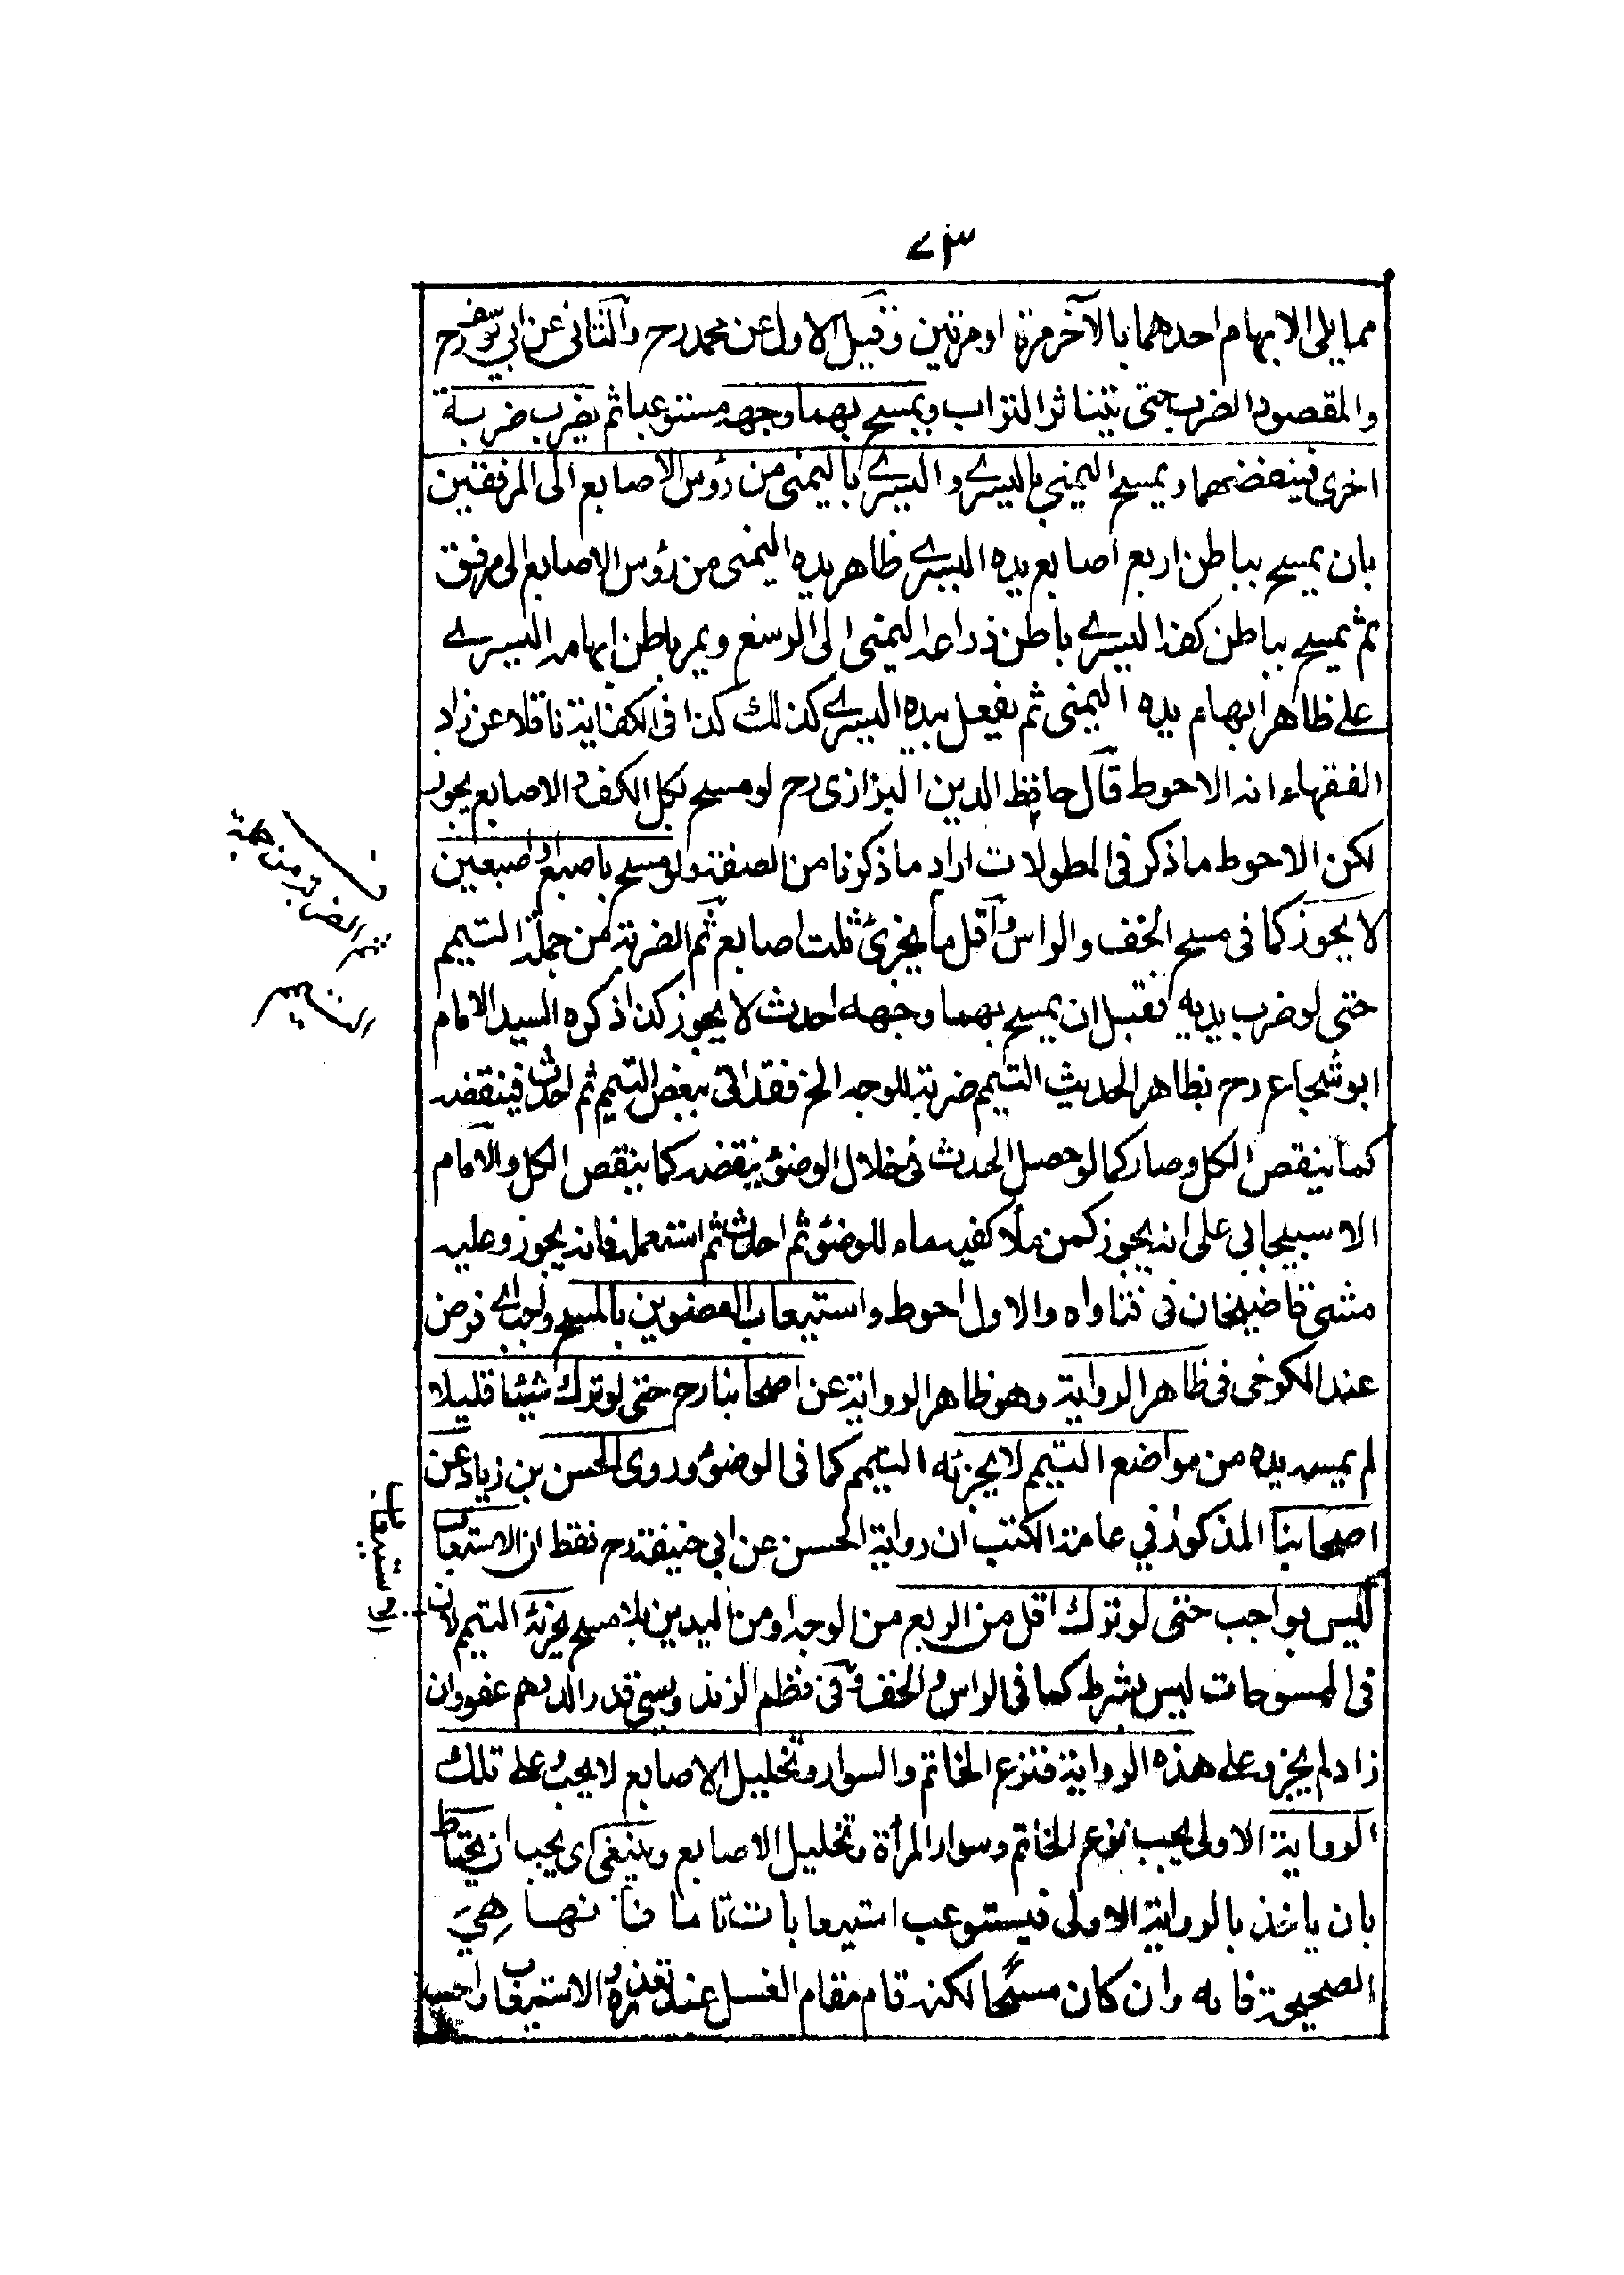 ٧٣
مما يلى الابهام احدهما بالآخر مرة او مرتين وقيل الاول عن محمد رح والثانى عن ابي يوسف رح
والمقصود الضرب حتى يتناثر التراب ويمسح بهما وجهه مستوعبا ثم يضرب ضربة
اخرى فينفضهما ويمسح اليمنى باليسرے واليسرے باليمنى من رؤس الاصابع الى المرفقين
بان يمسح بباطن اربع اصابع يده اليسرے ظاهر يده اليمنى من رؤس الاصابع الى مرفق
ثم يمسح بباطن كفه اليسرے باطن ذراعه اليمنى الى الرسغ ويمر باطن ابهامه اليسرے
على ظاهر ابهام يده اليمنى ثم يفعل بيده اليسرے كذلك كذا فى الكفاية ناقلا عن زاد
الفقهاء انه الاحوط قال حافظ الدين البزازى رح لو مسح بكل الكف و الاصابع يجوز
لكن الاحوط ما ذكر فى المطولات اراد ما ذكرنا من الصفة ولو مسح باصبع او اصبعين
لا يجوز كما فى مسح الخف والراس واقل ما يجزئ ثلث اصابع ثم الضربة من جملة التيمم
حتى لو ضرب يديه فقبل ان يمسح بهما وجهه احدث لا يجوز كذا ذكره السيد الامام
ابو شجاع رح بظاهر الحديث التيمم ضربة للوجه الخ فقد اتى ببعض التيمم ثم احدث فينقضه
كما ينقض الكل وصار كما لو حصل الحدث فى خلال الوضوء ينقضه كما ينقض الكل والامام
الاسبيجابي على انه يجوز كمن ملأ كفيه ماء للوضوء ثم احدث ثم استعمله فانه يجوز وعليه
مشى قاضيخان فى فتاواه والاول احوط واستيعاب العضوين بالمسح واجب اے فرض
عند الكرخى فى ظاهر الرواية وهو ظاهر الرواية عن اصحابنا رح حتى لو ترك شيئا قليلا
لم يمسه يده من مواضع التيمم لا يجزئه التيمم كما فى الوضوء وروى الحسن بن زياد عن
اصحابنا المذكور في عامة الكتب ان رواية الحسن عن ابى حنيفة رح فقط ان الاستيعاب
ليس بواجب حتى لو ترك اقل من الربع من الوجه او من اليدين بلا مسح يجزئه التيمم لان
فى الممسوحات ليس بشرط كما فى الراس والخف وفى نظم الزند ويسى قدر الدرهم عفو وان
زاد لم يجز وعلى هذه الرواية فنزع الخاتم والسوار وتخليل الاصابع لا يجب وعلى تلك
الرواية الاولى يجب نزع الخاتم وسوار المرأة وتخليل الاصابع وينبغى اى يجب ان يحتاط
بان ياخذ بالرواية الاولى فيستوعب استيعابا تاما فانها هِيَ
الصحيحة فانه وان كان مسحًا لكنه قام مقام الغسل عند تعذره و الاستيعاب واجب
ثم الضربة من جملة
التيمم
الاستيعاب